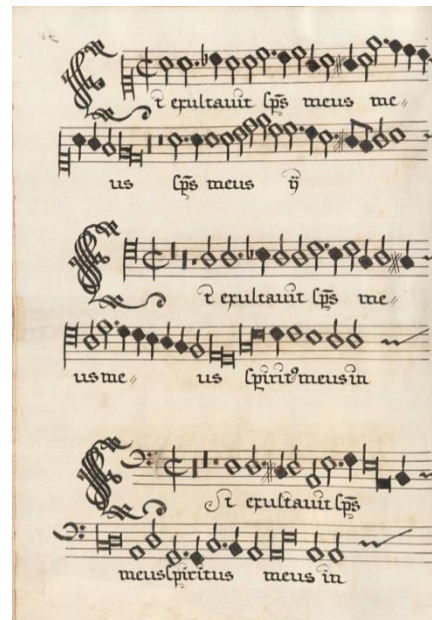 Et exultauit sp̃s meus me〃
us sp̃s meus ij
Et exultauit sp̃s me〃
us me〃 us spiritꝰ meus in
Et exultauit sp̃s
meus spiritus meus in